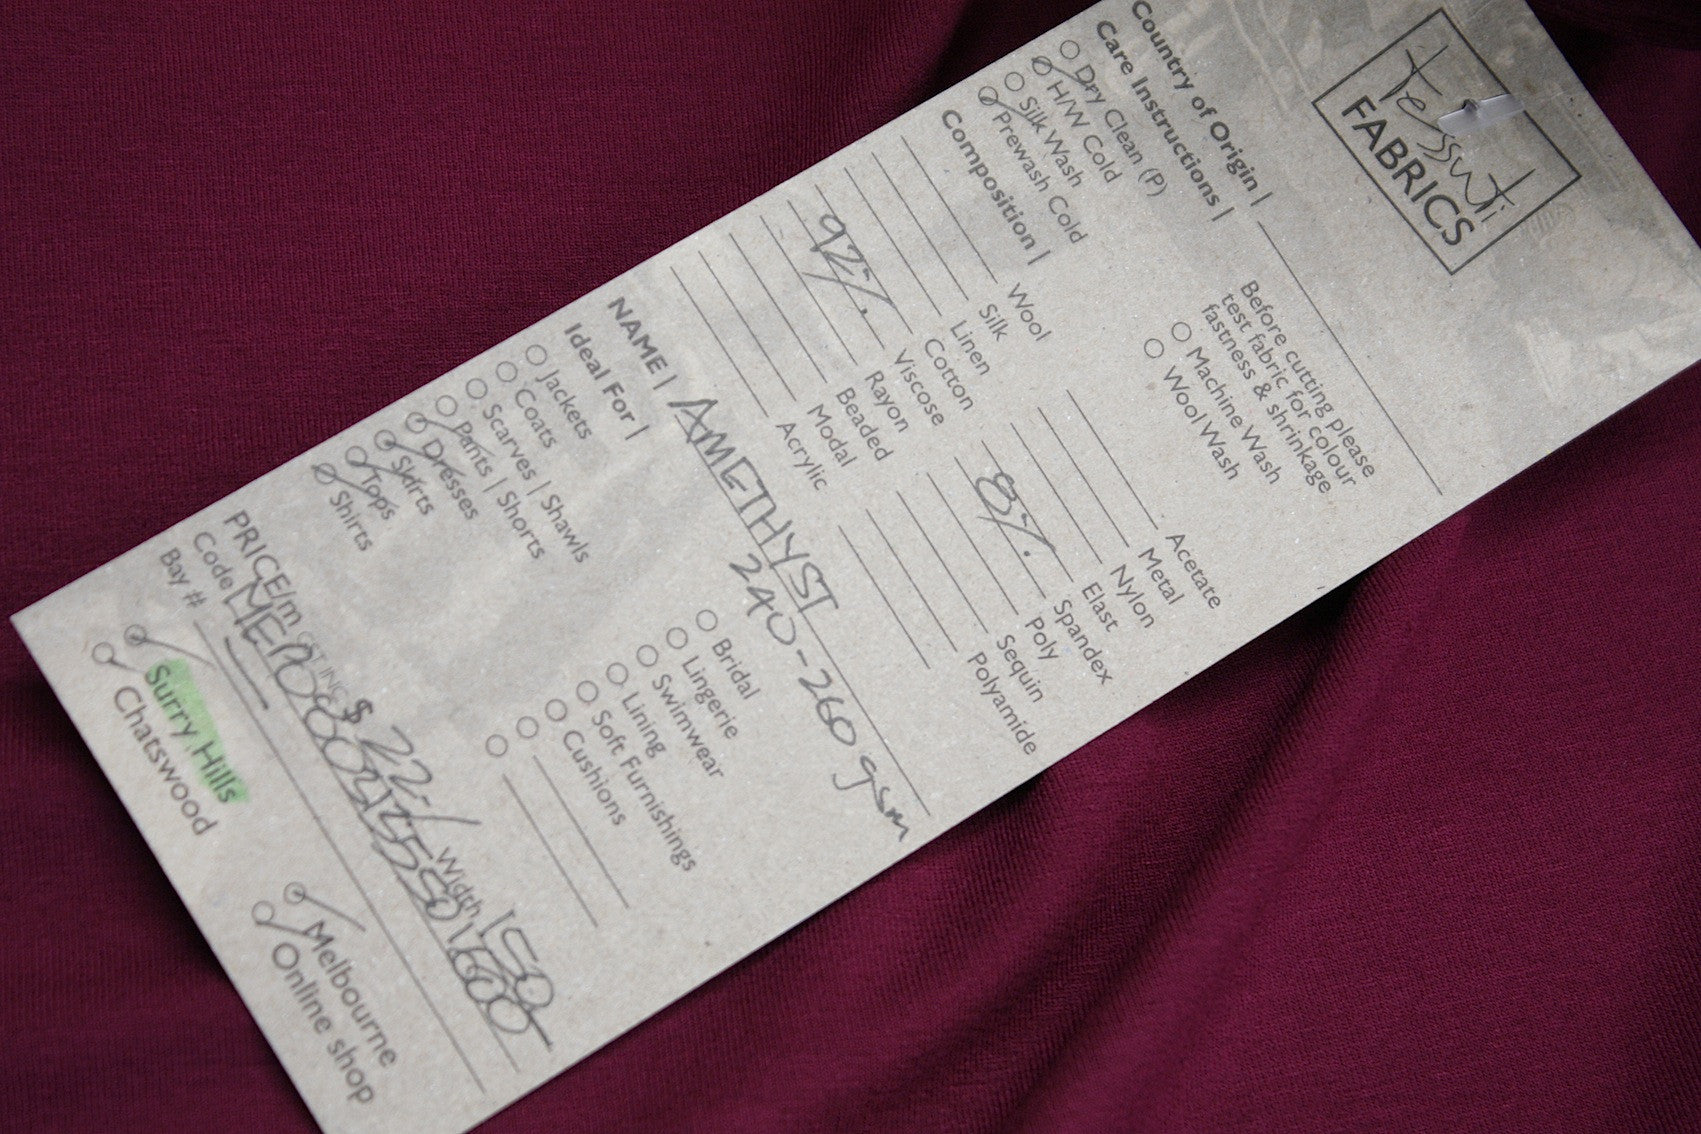 Tessuti
FABRICS
Country of Origin |
Care Instructions |
Before cutting please
test fabric for colour
fastness & shrinkage
Dry Clean (P)
H/W Cold
Silk Wash
Prewash Cold
Machine Wash
Wool Wash
Composition |
Wool
Silk
Linen
Cotton
92% Viscose
Rayon
Beaded
Modal
Acrylic
Acetate
Metal
Nylon
Elast
8% Spandex
Poly
Sequin
Polyamide
NAME | AMETHYST
240-260 gsm
Ideal For |
Jackets
Coats
Scarves | Shawls
Pants | Shorts
Dresses
Skirts
Tops
Shirts
Bridal
Lingerie
Swimwear
Lining
Soft Furnishings
Cushions
PRICE/m $22 Width 150
Code
Bay #
Surry Hills
Chatswood
Melbourne
Online shop